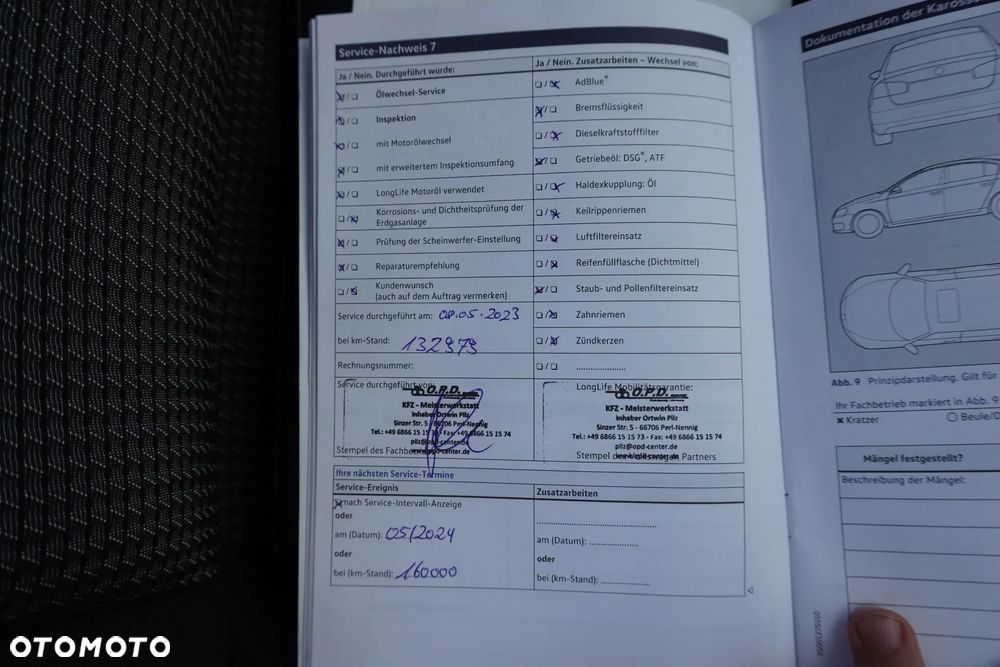 Service-Nachweis 7
Ja / Nein. Durchgeführt wurde:
Ölwechsel-Service
Inspektion
mit Motorölwechsel
mit erweitertem Inspektionsumfang
LongLife Motoröl verwendet
Korrosions- und Dichtheitsprüfung der
Erdgasanlage
Prüfung der Scheinwerfer-Einstellung
Reparaturempfehlung
Kundenwunsch
(auch auf dem Auftrag vermerken)
Service durchgeführt am: 08.05.2023
bei km-Stand: 132979
Rechnungsnummer:
Service durchgeführt von:
O.P.D.
KFZ - Meisterwerkstatt
Inhaber Ortwin Pilz
Sinzer Str. 5 - 66706 Perl-Nennig
Tel.: +49 6866 15 15 73 - Fax: +49 6866 15 15 74
pilz@opd-center.de
www.opd-center.de
Stempel des Fachbetriebs
Ja / Nein. Zusatzarbeiten – Wechsel von:
AdBlue®
Bremsflüssigkeit
Dieselkraftstofffilter
Getriebeöl: DSG®, ATF
Haldexkupplung: Öl
Keilrippenriemen
Luftfiltereinsatz
Reifenfüllflasche (Dichtmittel)
Staub- und Pollenfiltereinsatz
Zahnriemen
Zündkerzen
....................
LongLife Mobilitätsgarantie:
O.P.D.
KFZ - Meisterwerkstatt
Inhaber Ortwin Pilz
Sinzer Str. 5 - 66706 Perl-Nennig
Tel.: +49 6866 15 15 73 - Fax: +49 6866 15 15 74
pilz@opd-center.de
www.opd-center.de
Stempel des Volkswagen Partners
Ihre nächsten Service-Termine
Service-Ereignis
nach Service-Intervall-Anzeige
oder
am (Datum): 05/2024
oder
bei (km-Stand): 160.000
Zusatzarbeiten
am (Datum): ....................
oder
bei (km-Stand): ....................
Dokumentation der
Abb. 9 Prinzipdarstellung. Gilt für
Ihr Fachbetrieb markiert in Abb. 9
× Kratzer
Beule/D
Mängel festgestellt?
Beschreibung der Mängel:
OTOMOTO